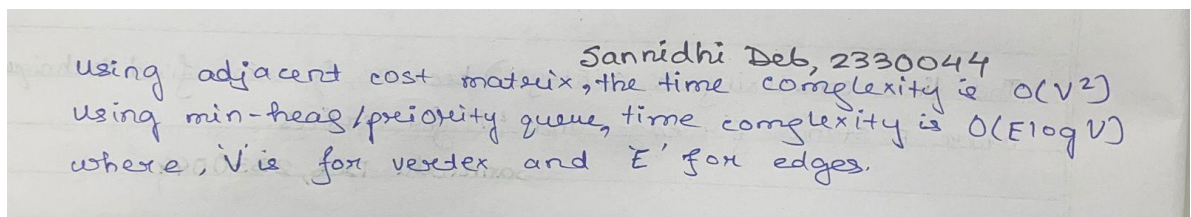 Sannidhi Deb, 2330044
using adjacent cost matrix, the time complexity is O(V²)
using min-heap/priority queue, time complexity is O(ElogV)
where, 'V' is for vertex and 'E' for edges.